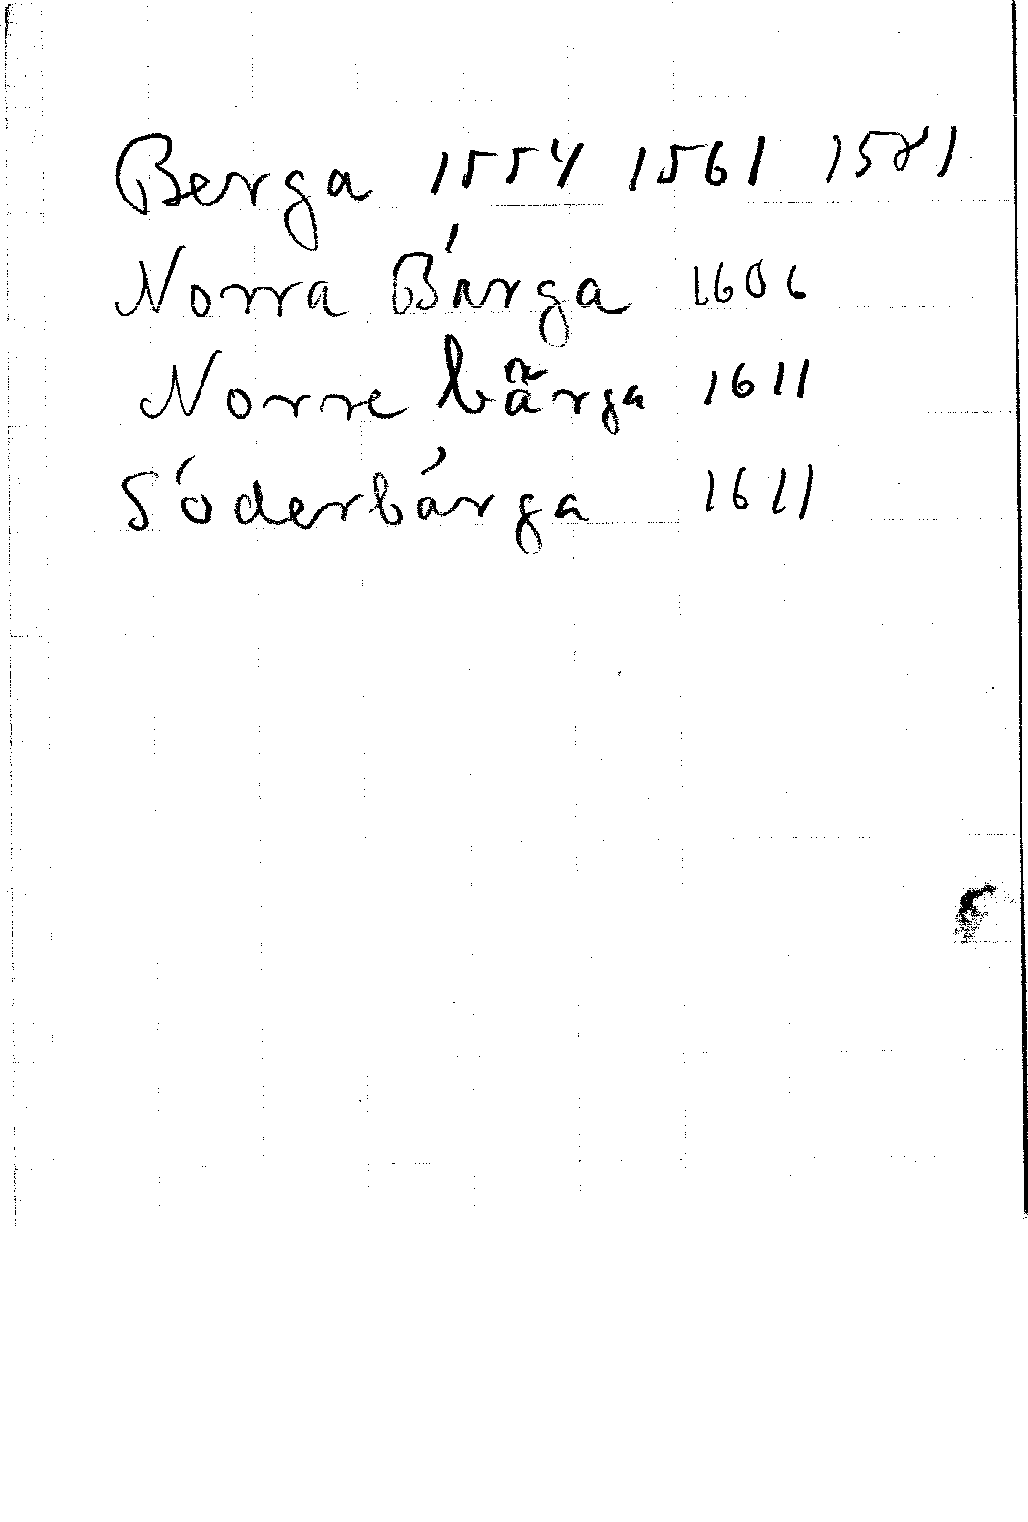 Berga 1554 1561 1581
Norra Bárga 1606
Norre bärga 1611
Söderbárga 1611